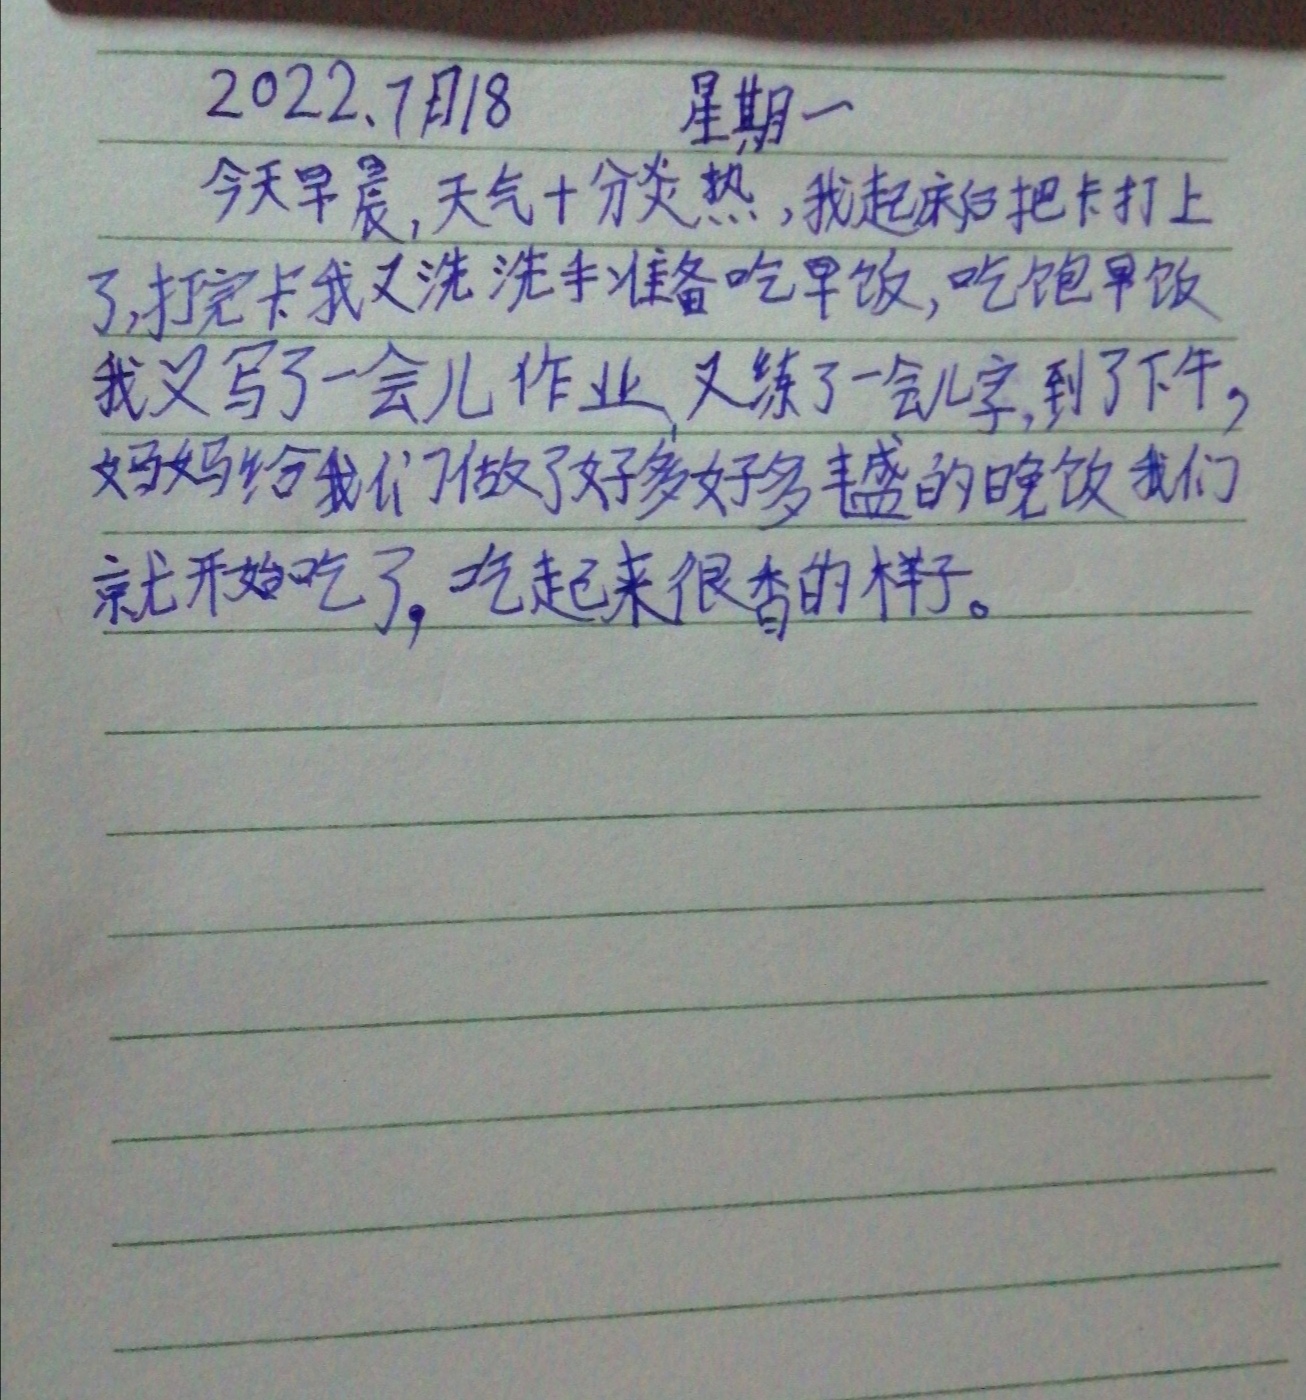 2022、7月18 星期一
今天早晨,天气十分炎热,我起床后把卡打上
了,打完卡我又洗洗手准备吃早饭,吃饱早饭
我又写了一会儿作业、又练了一会儿字,到了下午,
妈妈给我们做了好多好多丰盛的晚饮我们
就开始吃了,吃起来很香的样子。